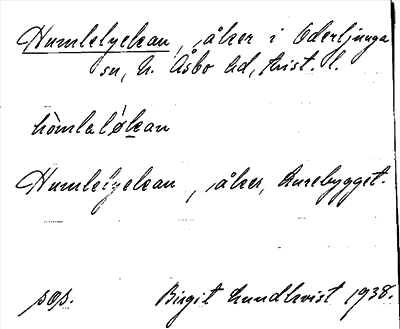 Humlelyckan, åker i Oderljunga
sn, N. Åsbo hd, Krist. l.
hòmlelø̀kan
Humlelyckan, åker, Lurebygget.
sep. Birgit Lundkvist 1938.